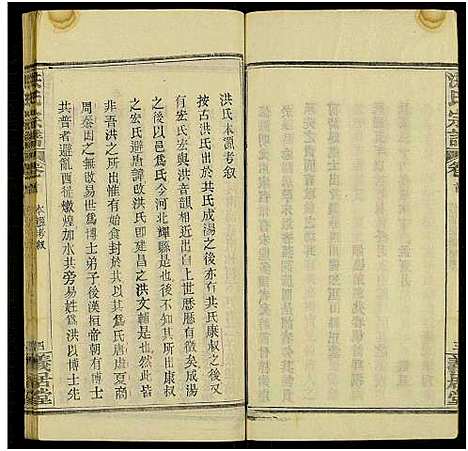 洪氏宗譜
卷首
三
義居堂
洪氏本源考叙
按古洪氏出於共氏成湯之後亦有共氏康叔之後又
有宏氏宏與洪音韻相近出自上世歷歷有徵矣成湯
之後以邑以氏今河北輝縣是也不知其所出康叔
之宏氏避唐諱改洪氏即建昌之洪文輔是也然此皆
非吾洪之所自出惟有始食封於共其爲氏唐虞夏商
周秦因之無改易世爲博士弟子後漢桓帝朝有博士
共普者避亂西征燉煌加水共旁易姓爲洪以博士先
洪氏宗譜
卷首
本源考叙
義居堂